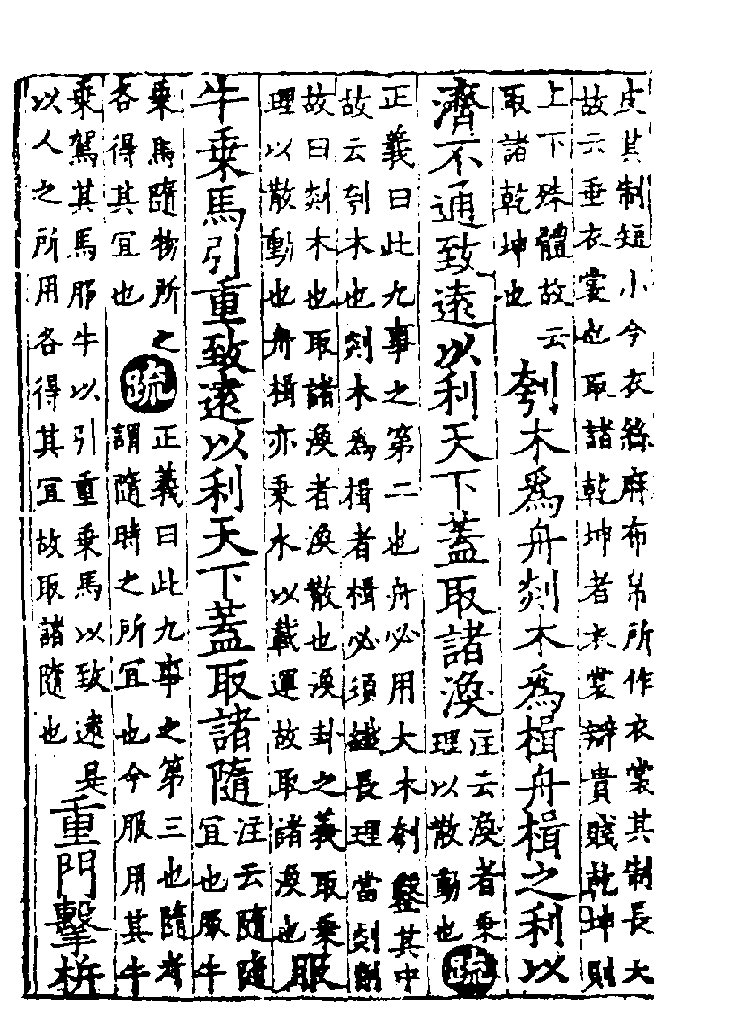 皮其制短小今衣絲麻布帛所作衣裳其制長大
故云垂衣裳也取諸乾坤者衣裳辯貴賤乾坤則
上下殊體故云
取諸乾坤也
刳木爲舟剡木爲楫舟楫之利以
濟不通致遠以利天下蓋取諸渙
注云渙者乘
理以散動也
疏
正義曰此九事之第二也舟必用大木刳鑿其中
故云刳木也剡木爲楫者楫必須纖長理當剡削
故曰剡木也取諸渙者渙散也渙卦之義取乘
理以散動也舟楫亦乘水以載運故取諸渙也
服
牛乘馬引重致遠以利天下蓋取諸隨
注云隨隨
宜也服牛
乘馬隨物所之
各得其宜也
疏
正義曰此九事之第三也隨者
謂隨時之所宜也今服用其牛
乘駕其馬服牛以引重乘馬以致遠是
以人之所用各得其宜故取諸隨也
重門擊柝